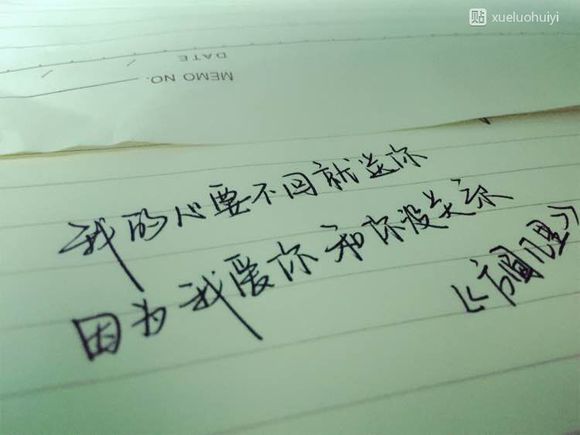 贴 xueluohuiyi
DATE
MEMO NO.
我的心要不回就送你
因为我爱你和你没关系